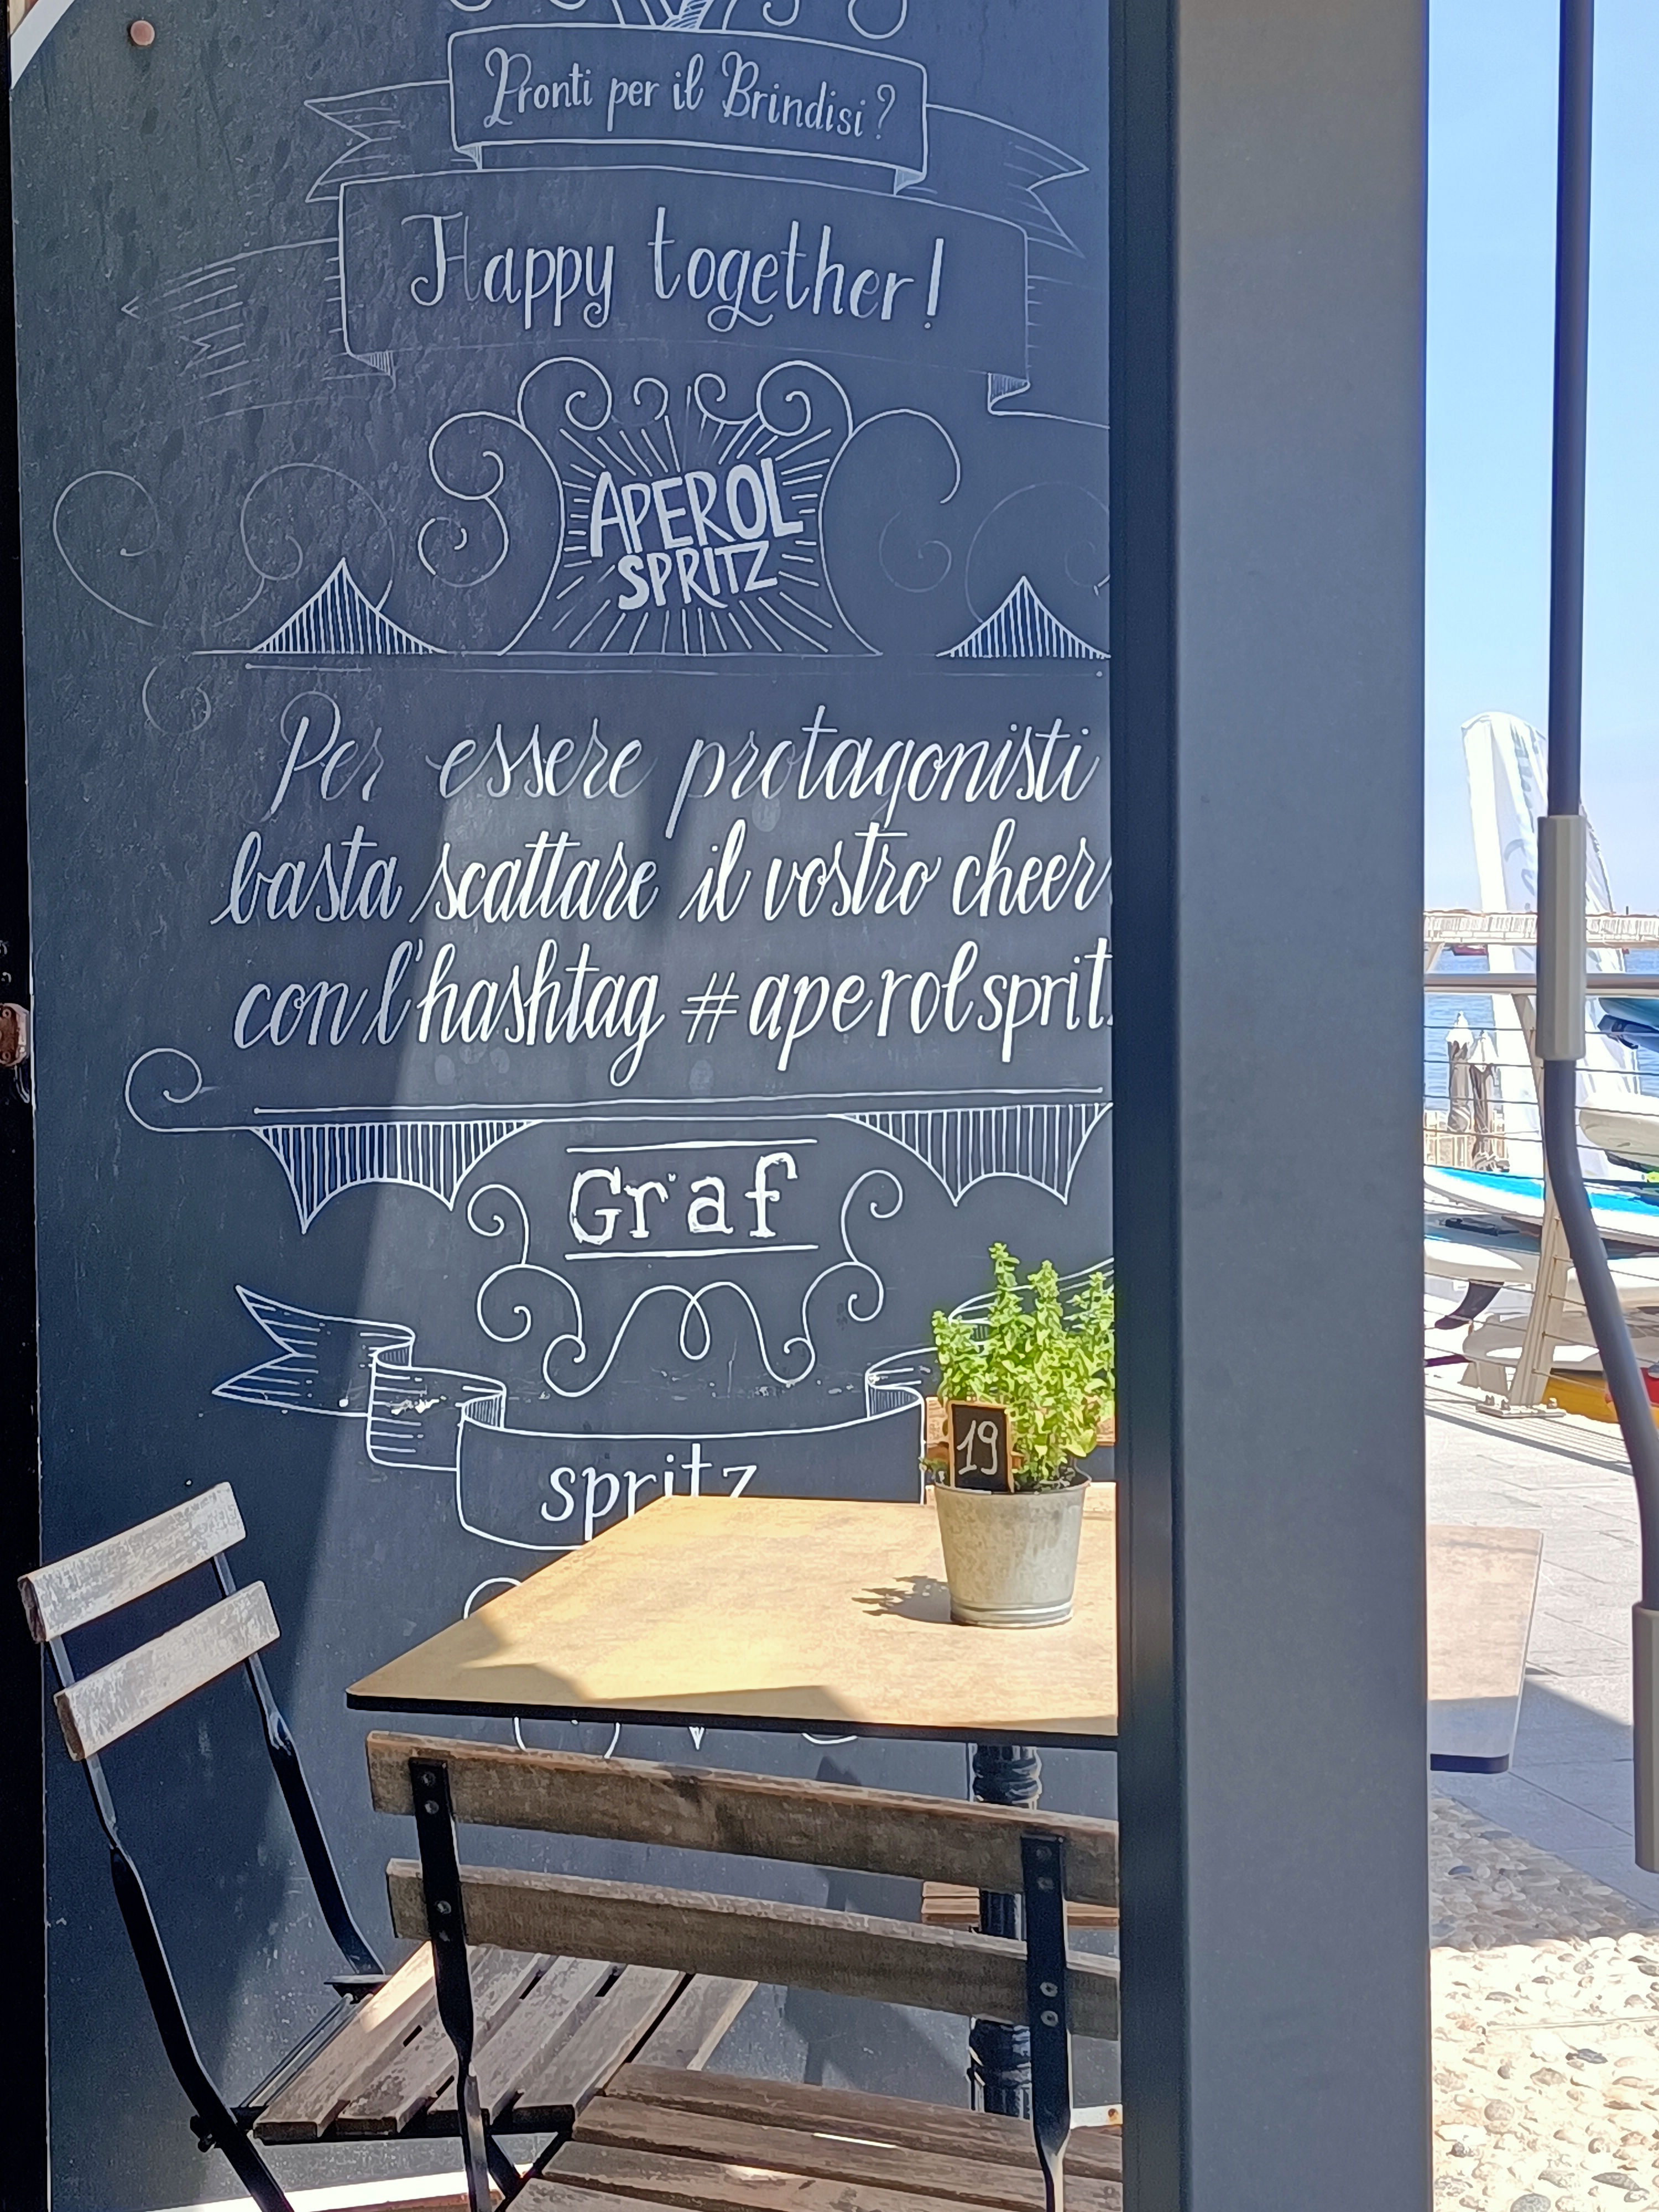 Pronti per il Brindisi?
Happy together!
APEROL
SPRITZ
Per essere protagonisti
basta scattare il vostro cheer
con l'hashtag #aperolsprit
Graf
19
spritz